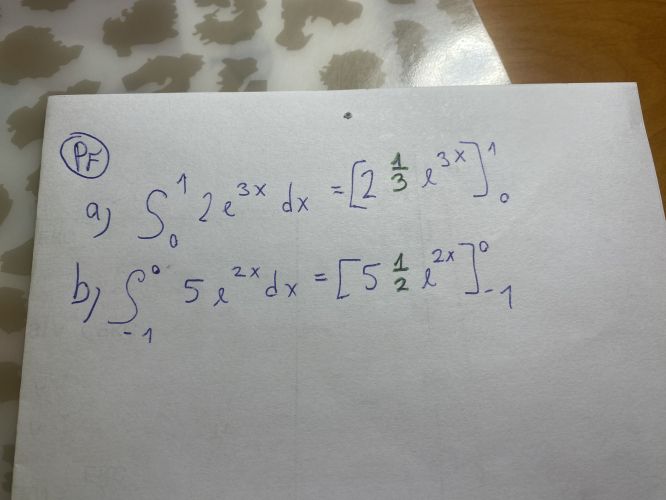 PF
a) ∫₀¹ 2e^{3x} dx = [2 \frac{1}{3} e^{3x}]₀¹
b) ∫₋₁⁰ 5e^{2x} dx = [5 \frac{1}{2} e^{2x}]₋₁⁰